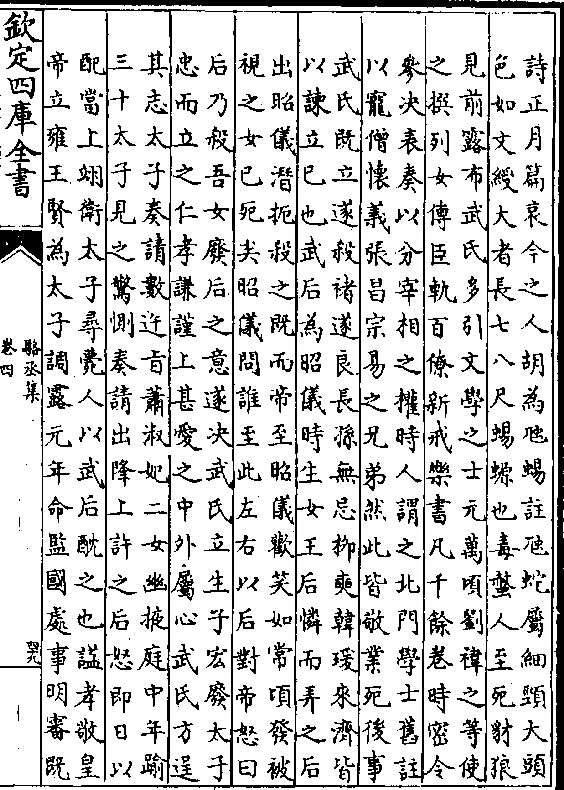 詩正月篇哀今之人胡為虺蜴註虺蛇屬細頸大頭
色如文綬大者長七八尺蜴螈也毒螫人至死豺狼
見前露布武氏多引文學之士元萬頃劉禕之等使
之撰列女傳臣軌百僚新戒樂書凡千餘卷時密令
參决表奏以分宰相之權時人謂之北門學士舊註
以寵僧懷義張昌宗易之兄弟然此皆敬業死後事
武氏既立遂殺禇遂良長孫無忌栁奭韓瑗來濟皆
以諫立已也武后為昭儀時生女王后憐而弄之后
出昭儀潛扼殺之既而帝至昭儀歡笑如常頃發被
視之女已死矣昭儀問誰至此左右以后對帝怒曰
后乃殺吾女廢后之意遂决武氏立生子宏廢太子
忠而立之仁孝謙謹上甚愛之中外屬心武氏方逞
其志太子奏請數迕㫖蕭淑妃二女幽掖庭中年踰
三十太子見之驚惻奏請出降上許之后怒即日以
配當上翊衛太子尋薨人以武后酖之也謚孝敬皇
帝立雍王賢為太子調露元年命監國處事明審既
欽定四庫全書
駱丞集
卷四